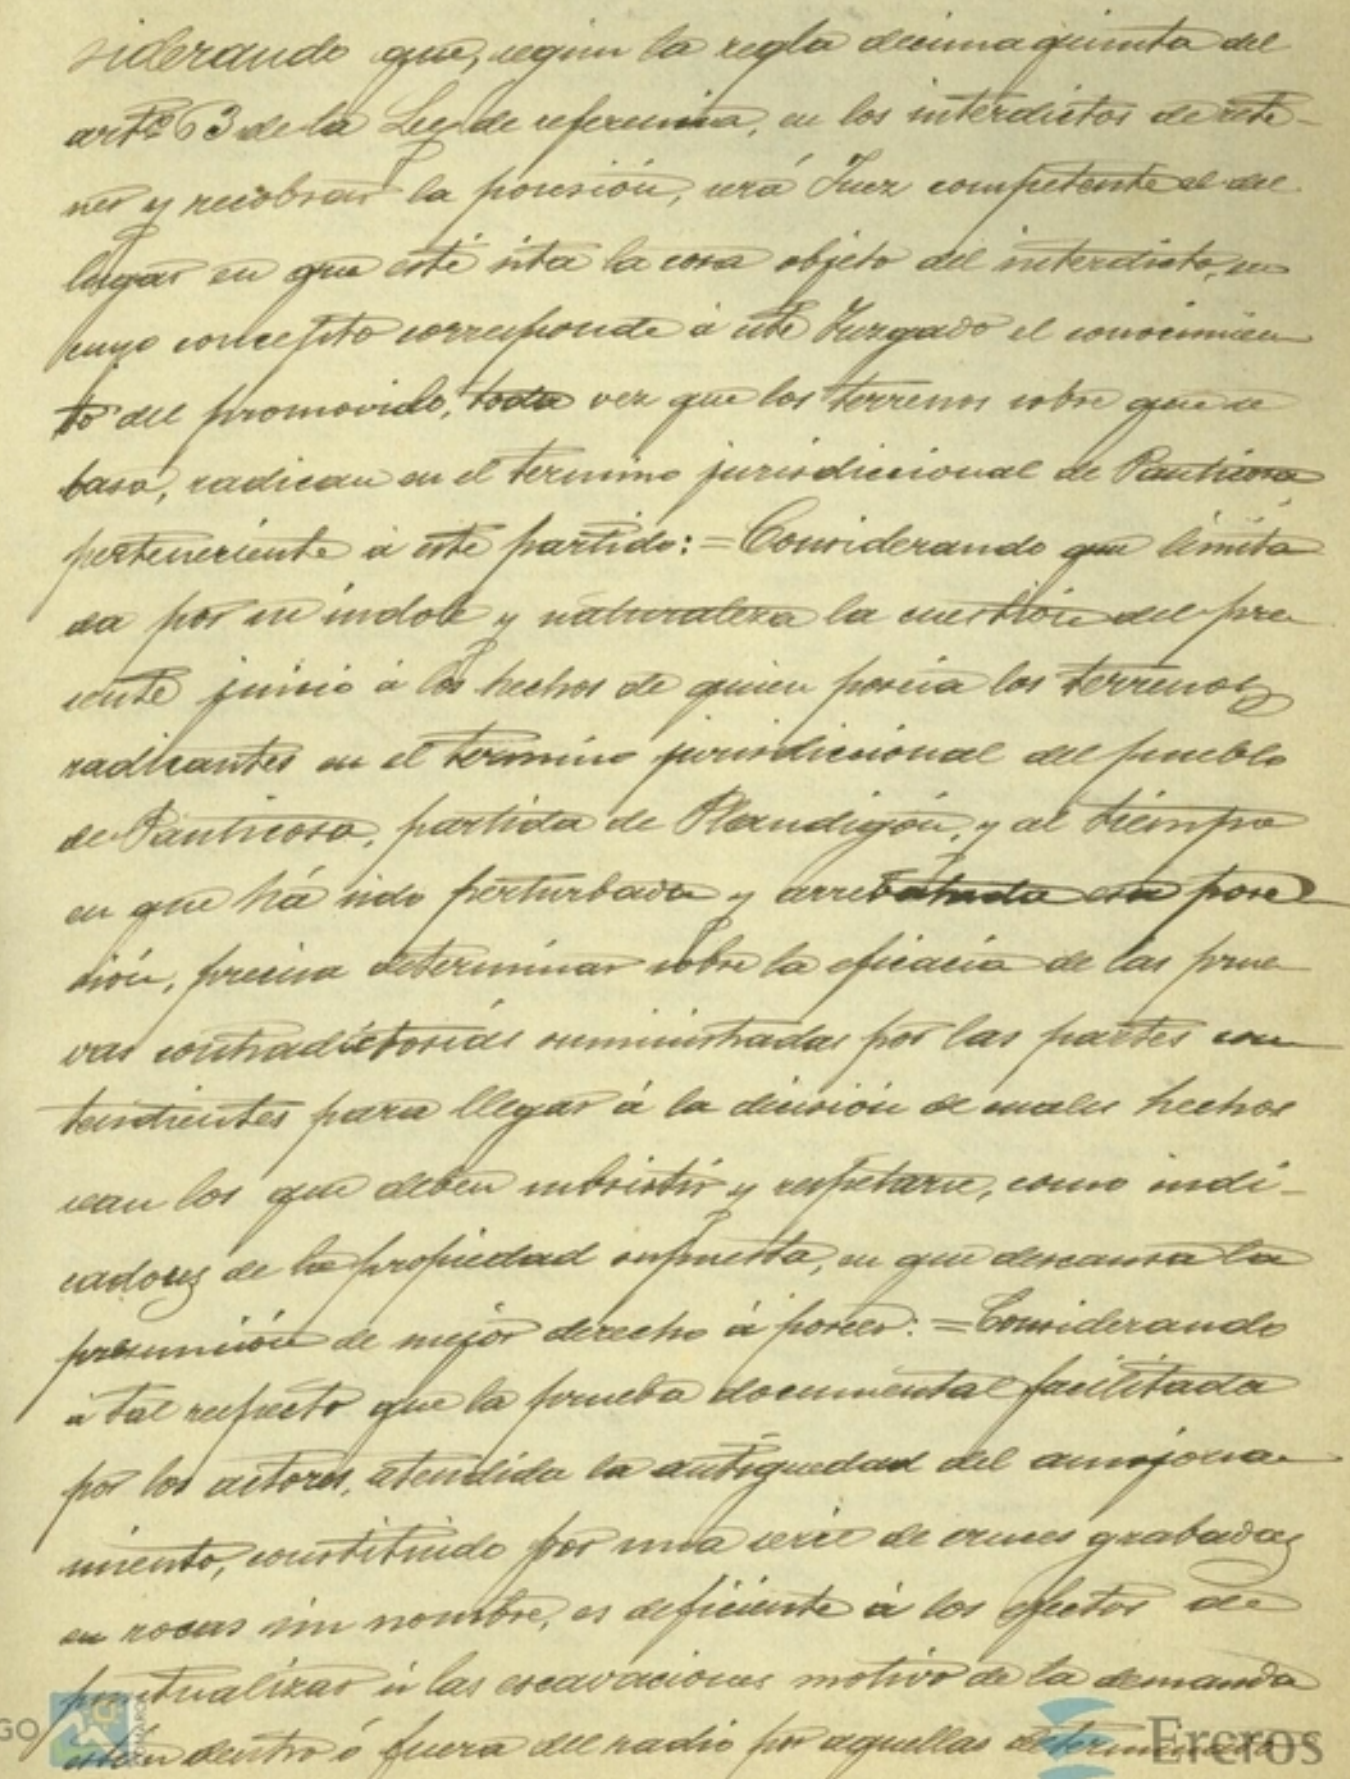 siderando que, según la regla decima quinta del
artº 63 de la Ley de referencia, en los interdictos de rete-
ner y recobrar la posesión, será Juez competente el del
lugar en que esté sita la cosa objeto del interdicto, en
cuyo concepto corresponde á este Juzgado el conocimien
to del promovido, toda vez que los terrenos sobre que se
basa, radican en el termino jurisdiccional de Panticosa,
perteneciente á este partido: = Considerando que limita
da por su indole y naturaleza la cuestión del pre
sente juicio á los hechos de quien poseia los terrenos
radicantes en el termino jurisdiccional del pueblo
de Panticosa, partida de Plandigón, y al tiempo
en que há sido perturbada y arrebatada esa pose
sión, precisa determinar sobre la eficacia de las prue
vas contradictorias suministradas por las partes con
tendientes para llegar á la decisión de cuales hechos
sean los que deben subsistir y respetarse, como indi-
cadores de la propiedad supuesta, en que descansa la
presunción de mejor derecho á poseer: = Considerando
á tal respecto que la prueba documental facilitada
por los actores, atendida la antiguedad del amojona
miento, constituido por una serie de cruces grabadas
en rocas sin nombre, es deficiente á los efectos de
puntualizar si las escavaciones motivo de la demanda
están dentro ó fuera del radio por aquellas determinado
GO
Ercros